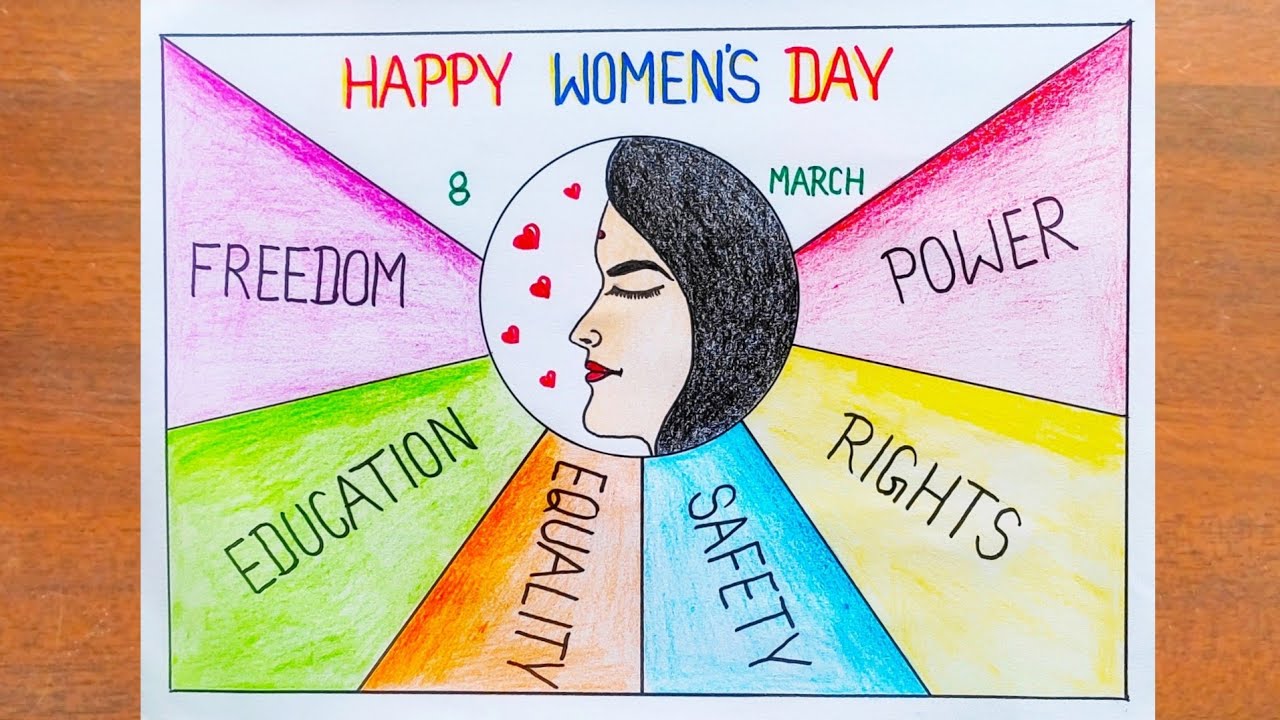 HAPPY WOMEN'S DAY
8 MARCH
FREEDOM
POWER
EDUCATION
EQUALITY
SAFETY
RIGHTS